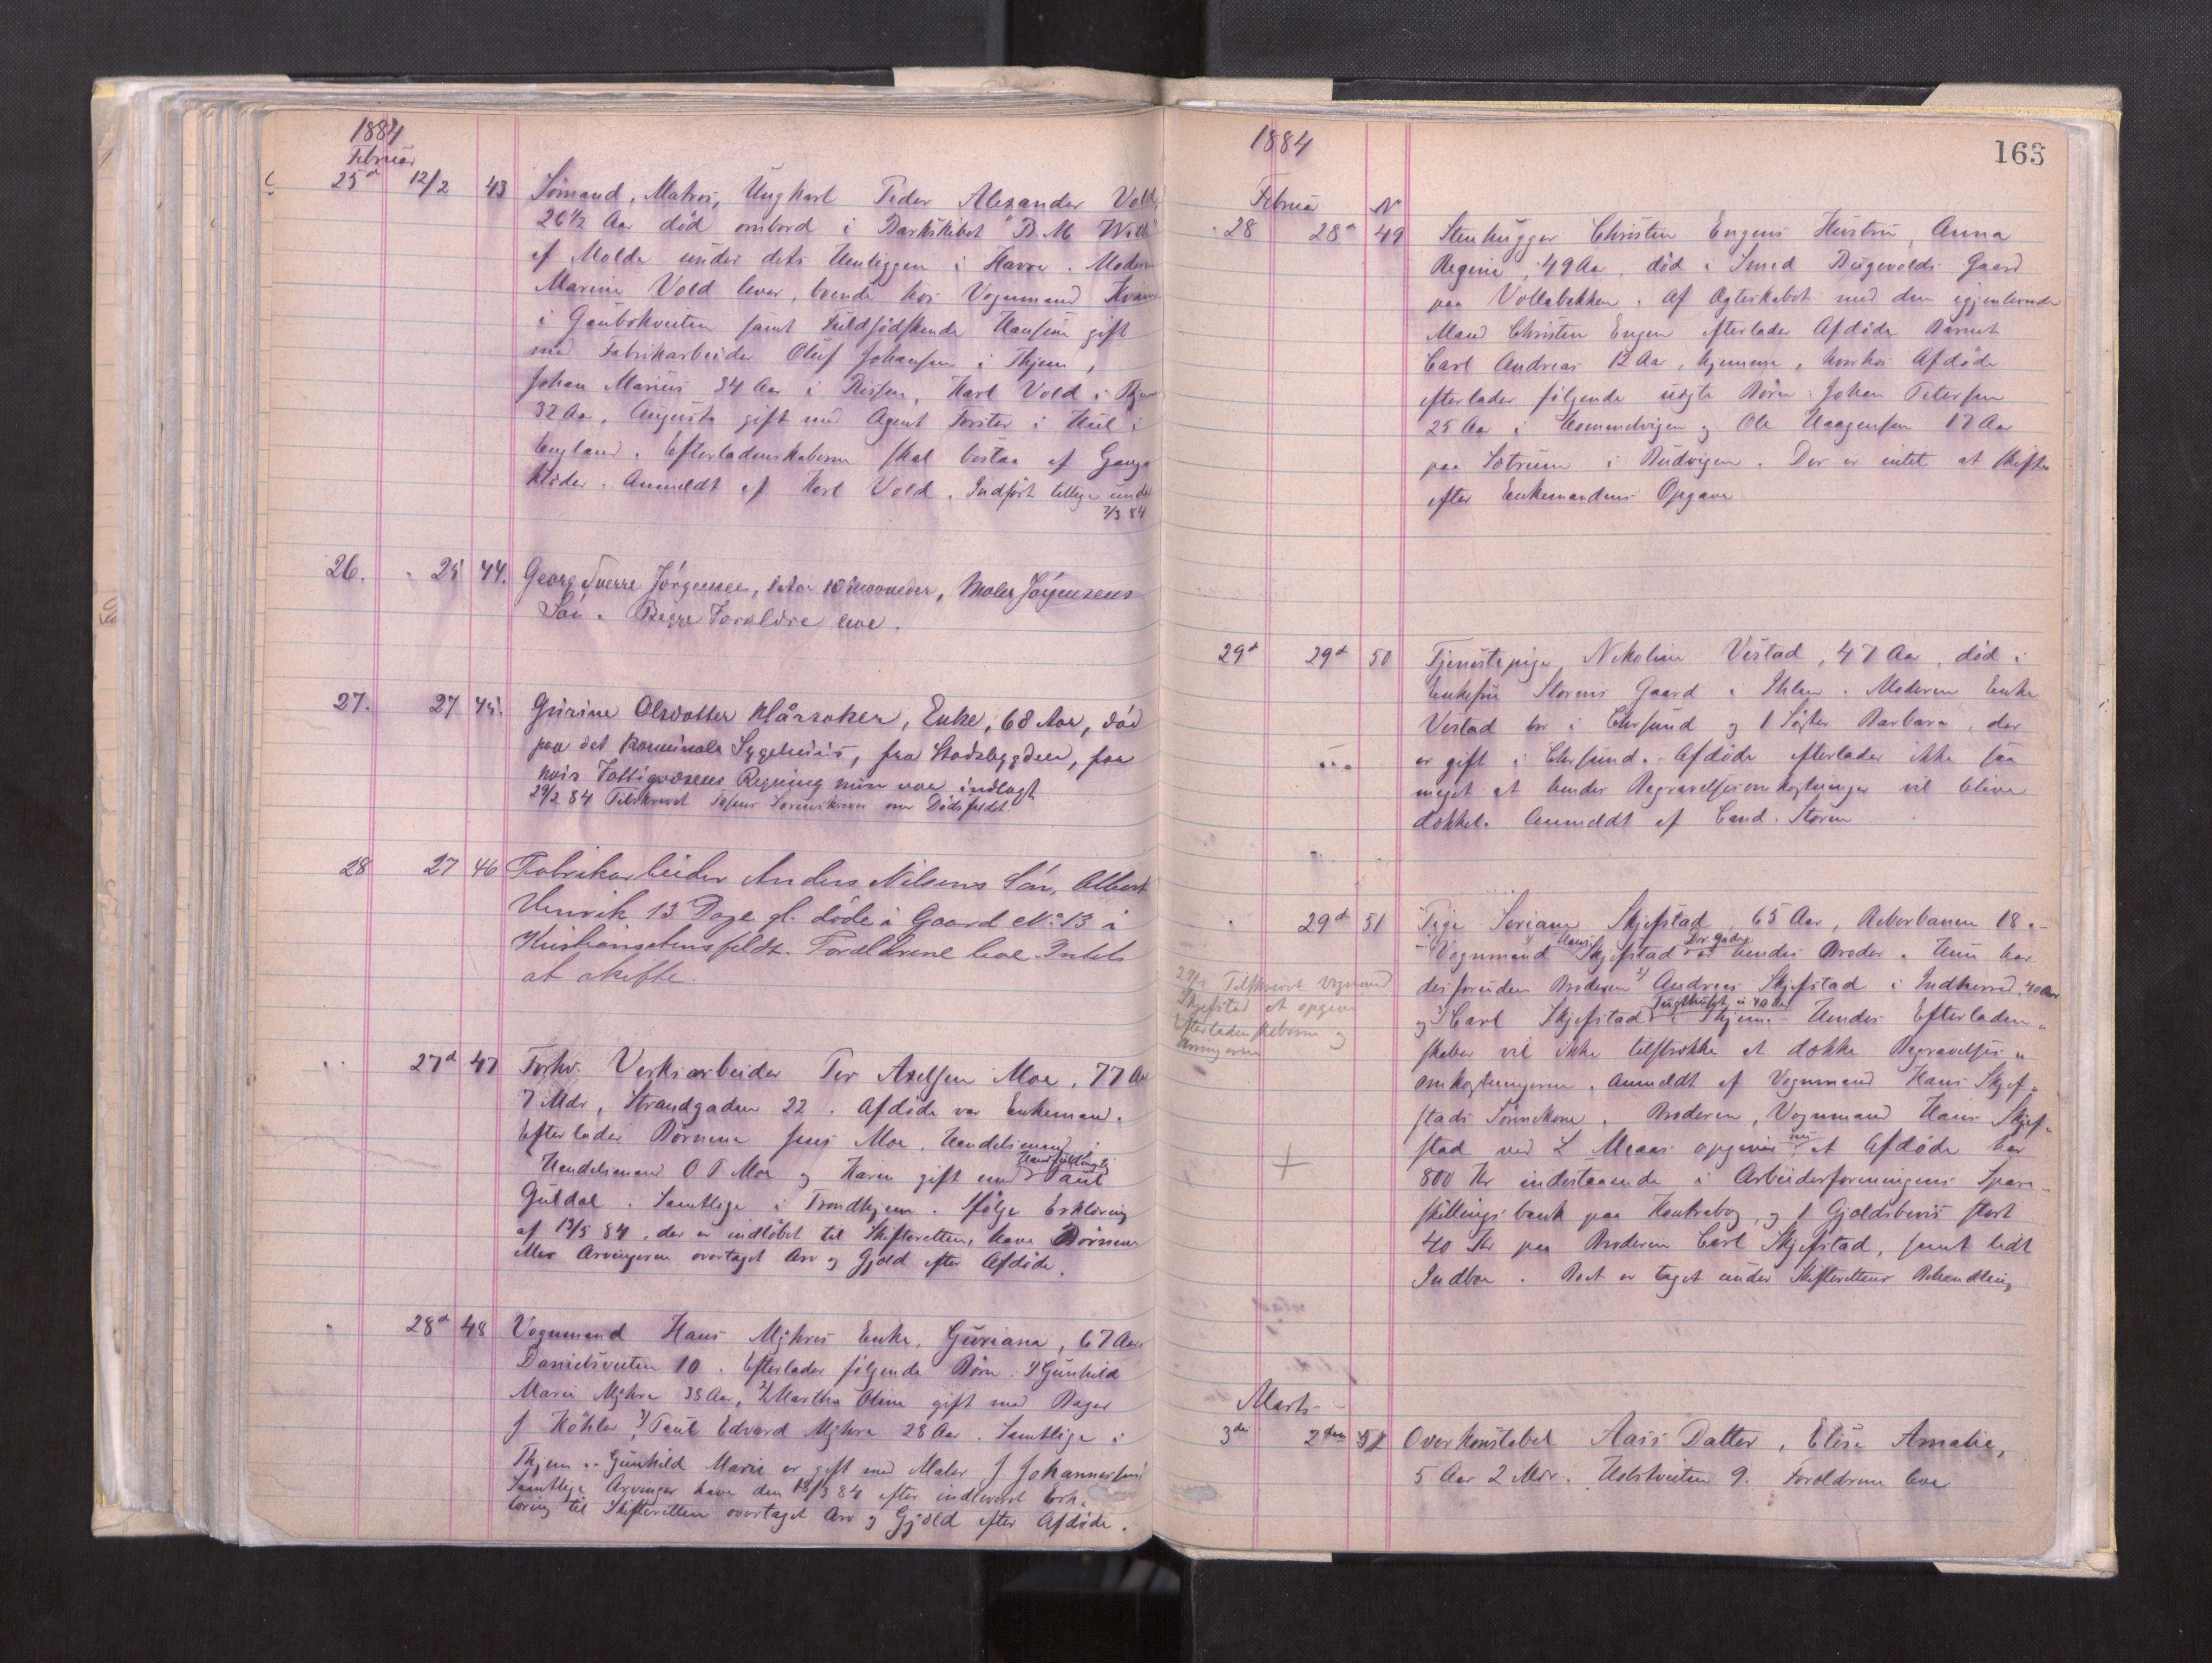 1884
Februar
25d 12/2 43 Sömand, Matros, Ungkarl Peder Alexander Vold,
26 1/2 Aar död ombord i Barkskibet "B. M. With"
af Molde under dets Henliggen i Havre. Moderen
Marine Vold lever, boende hos Vognmand
i Gaubækveiten samt Fuldsödskende Hansine gift
med Fabrikarbeider Oluf Johansen i Thjem,
Johan Marius 34 Aar i Rissen, Karl Vold i
32 Aar, Augusta gift med Agent Forster i Hul i
England. Efterladenskaberne skal bestaa af Gang
klæder. Anmeldt af Karl Vold. Indfört tillige under
7/3 84
26. 25 44. Georg Sverre Jörgensen, 1 Aar 10 Maaneder, Maler Jörgensens
Sön. Begge Forældre leve.
27. 27 45. Gurine Olsdatter Klårsaker, Enke, 68 Aar, död
paa det kommunale Sygehuus, fra Stadsbygden, for
hvis Fattigvæsens Regning hun var indlagt
29/2 84 Tilskrevet Fosens Sorenskriver om Dödsfaldet.
28 27 46 Fabrikarbeider Anders Nilsens Sön, Albert
Henrik 13 Dage gl. döde i Gaard No 13 i
Kristiansstensfeldt. Forældrene leve. Intet
at skifte.
27d 47 Forhv. Verksarbeider Per Axelsen Moe, 77 Aar
7 Mdr, Strandgaden 22. Afdöde var Enkemand.
Efterlader Börnene Jens Moe, Handelsmand,
Handelsmand O P Moe og Karen gift med Handelsfuldmægtig Paul
Guldal. Samtlige i Trondhjem. Ifölge Erklæring
af 13/5 84, der er indlöbet til Skifteretten, have Börnene
eller Arvingerne overtaget Arv og Gjæld efter Afdöde.
28d 48 Vognmand Hans Mjhres Enke, Guriana, 67 Aar,
Danielsveiten 10. Efterlader fölgende Börn: 1/ Gunhild
Marie Mjhre 38 Aar, 2/ Martha Oline gift med Bager
J Köhler, 3/ Paul Edvard Mjhre 28 Aar. Samtlige i
Thjem. Gunhild Marie er gift med Maler J Johannesen
Samtlige Arvinger have den 18/3 84 efter indleveret Erk-
læring til Skifteretten overtaget Arv og Gjæld efter Afdöde.
1884
163
Februar No
28 28d 49 Stenhugger Christen Engens Hustru, Anna
Regine, 49 Aar, död i Smed Bugevolds Gaard
paa Vollabakken. Af Ægteskabet med den igjenlevende
Mand Christen Engen efterlader Afdöde Barnet
Carl Andreas 12 Aar, hjemme, hvorhos Afdöde
efterlader fölgende uægte Börn: Johan Petersen
25 Aar i Hommelvigen og Ole Haagensen 17 Aar
paa Sætrum i Budvigen. Der er intet at skifte
efter Enkemandens Opgave.
29d 29d 50 Tjenestepige Nikoline Vestad, 47 Aar, död i
Enkefru Storms Gaard i Ihlen. Moderen Enke
Vestad bor i Chrsund og 1 Söster Barbara, der
er gift i Chrsund. Afdöde efterlader ikke saa
meget at hendes Begravelsesomkostninger vil blive
dækket. Anmeldt af Cand. Storm
29d 51 Pige Seriane Skjefstad, 65 Aar, Reberbanen 18.
Vognmand Hans Skjefstad er hendes Broder. Hun har
desforuden Broderen 2/ Andreas Skjefstad i Indherred, 40 Aar
og 3/ Carl Skjefstad i Thjem. Hendes Efterladen-
skaber vil ikke tilstrække at dække Begravelses-
omkostningerne. Anmeldt af Vognmand Hans Skjef-
stads Sönnekone. Broderen, Vognmand Hans Skjef-
stad ved L Meaas opgiver nu at Afdöde har
800 Kr indestaaende i Arbeiderforeningens Spare-
skillingsbank paa Kontrabog, og 1 Gjældsbevis stort
40 Kr paa Broderen Carl Skjefstad, samt lidt
Indbo. Boet er taget under Skifterettens Behandling
29/2 Tilskrevet Vognmand
Skjefstad at opgive
Efterladenskaberne og
Arvingerne
Marts
3die 2den 52 Overkonstabel Aass Datter, Elise Amalie,
5 Aar 2 Mdr. Holstveiten 9. Forældrene leve